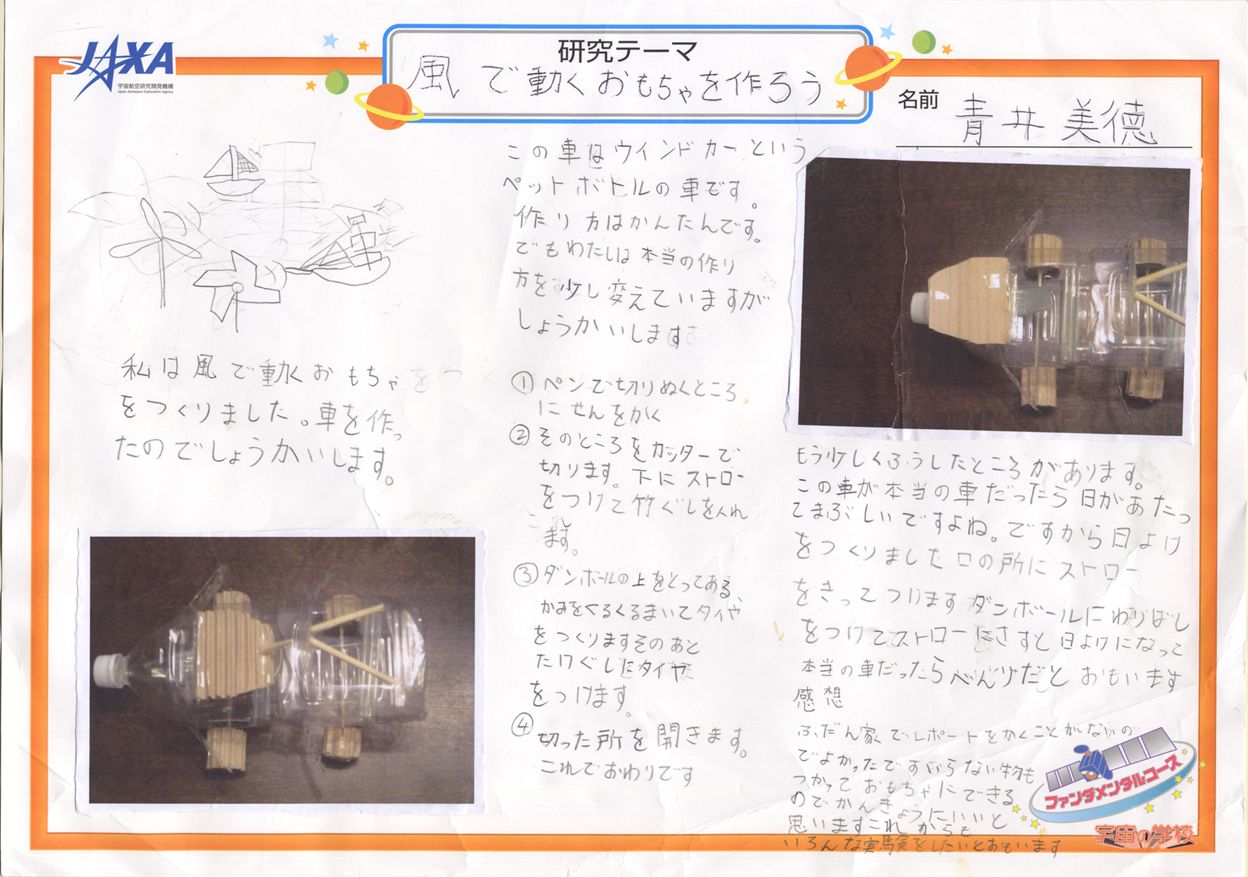 JAXA
宇宙航空研究開発機構
Japan Aerospace Exploration Agency
研究テーマ
風で動くおもちゃを作ろう
名前 青井美徳
私は風で動くおもちゃ
をつくりました。車を作っ
たのでしょうかいします。
この車はウインドカーという
ペットボトルの車です。
作り方はかんたんです。
でもわたしは本当の作り
方を少し変えていますが
しょうかいします
① ペンで切りぬくところ
にせんをかく
② そのところをカッターで
切ります。下にストロー
をつけて竹ぐしを入れ
ます。
③ ダンボールの上をとってある、
かみをくるくるまいてタイヤ
をつくりますそのあと
たけぐしにタイヤ
をつけます。
④ 切った所を開きます。
これでおわりです
もう少しくふうしたところがあります。
この車が本当の車だったら日があたっ
てまぶしいですよね。ですから日よけ
をつくりました口の所にストロー
をきってつけますダンボールにわりばし
をつけてストローにさすと日よけになって
本当の車だったらべんりだとおもいます
感想
ふだん家でレポートをかくことがないの
でよかったですいらない物も
つかっておもちゃにできる
のでかんきょうにいいと
思いますこれからも
いろんな実験をしたいとおもいます
ファンダメンタルコース
宇宙の学校